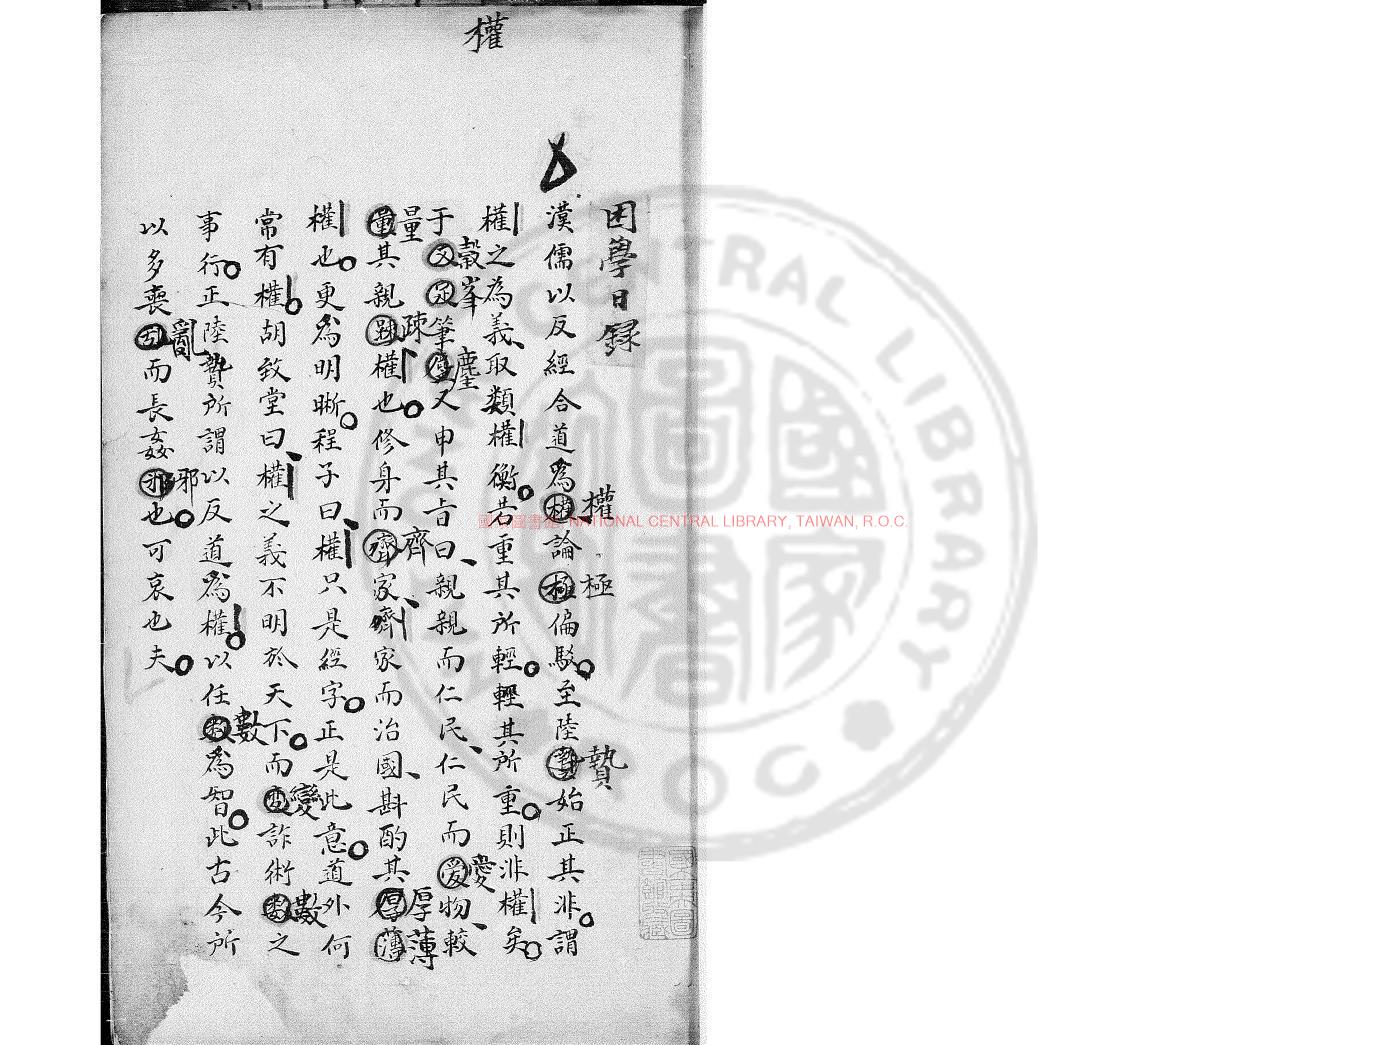 權
困學日錄
權 極 贄
漢儒以反經合道爲權論極偏駁至陸贄始正其非謂
權之為義取類權衡若重其所輕輕其所重則非權矣
穀峯 麈 愛
于文定筆麈又申其旨曰親親而仁民仁民而愛物較
量 疎 齊 厚薄
量其親疎權也修身而齊家齊家而治國斟酌其厚薄
權也更爲明晰程子曰權只是經字正是此意道外何
變 數
常有權胡致堂曰權之義不明於天下而變詐術數之
數
事行正陸贄所謂以反道爲權以任數爲智此古今所
亂 邪
以多喪亂而長姦邪也可哀也夫
國家圖書館 NATIONAL CENTRAL LIBRARY, TAIWAN, R.O.C.
CENTRAL LIBRARY
R.O.C.